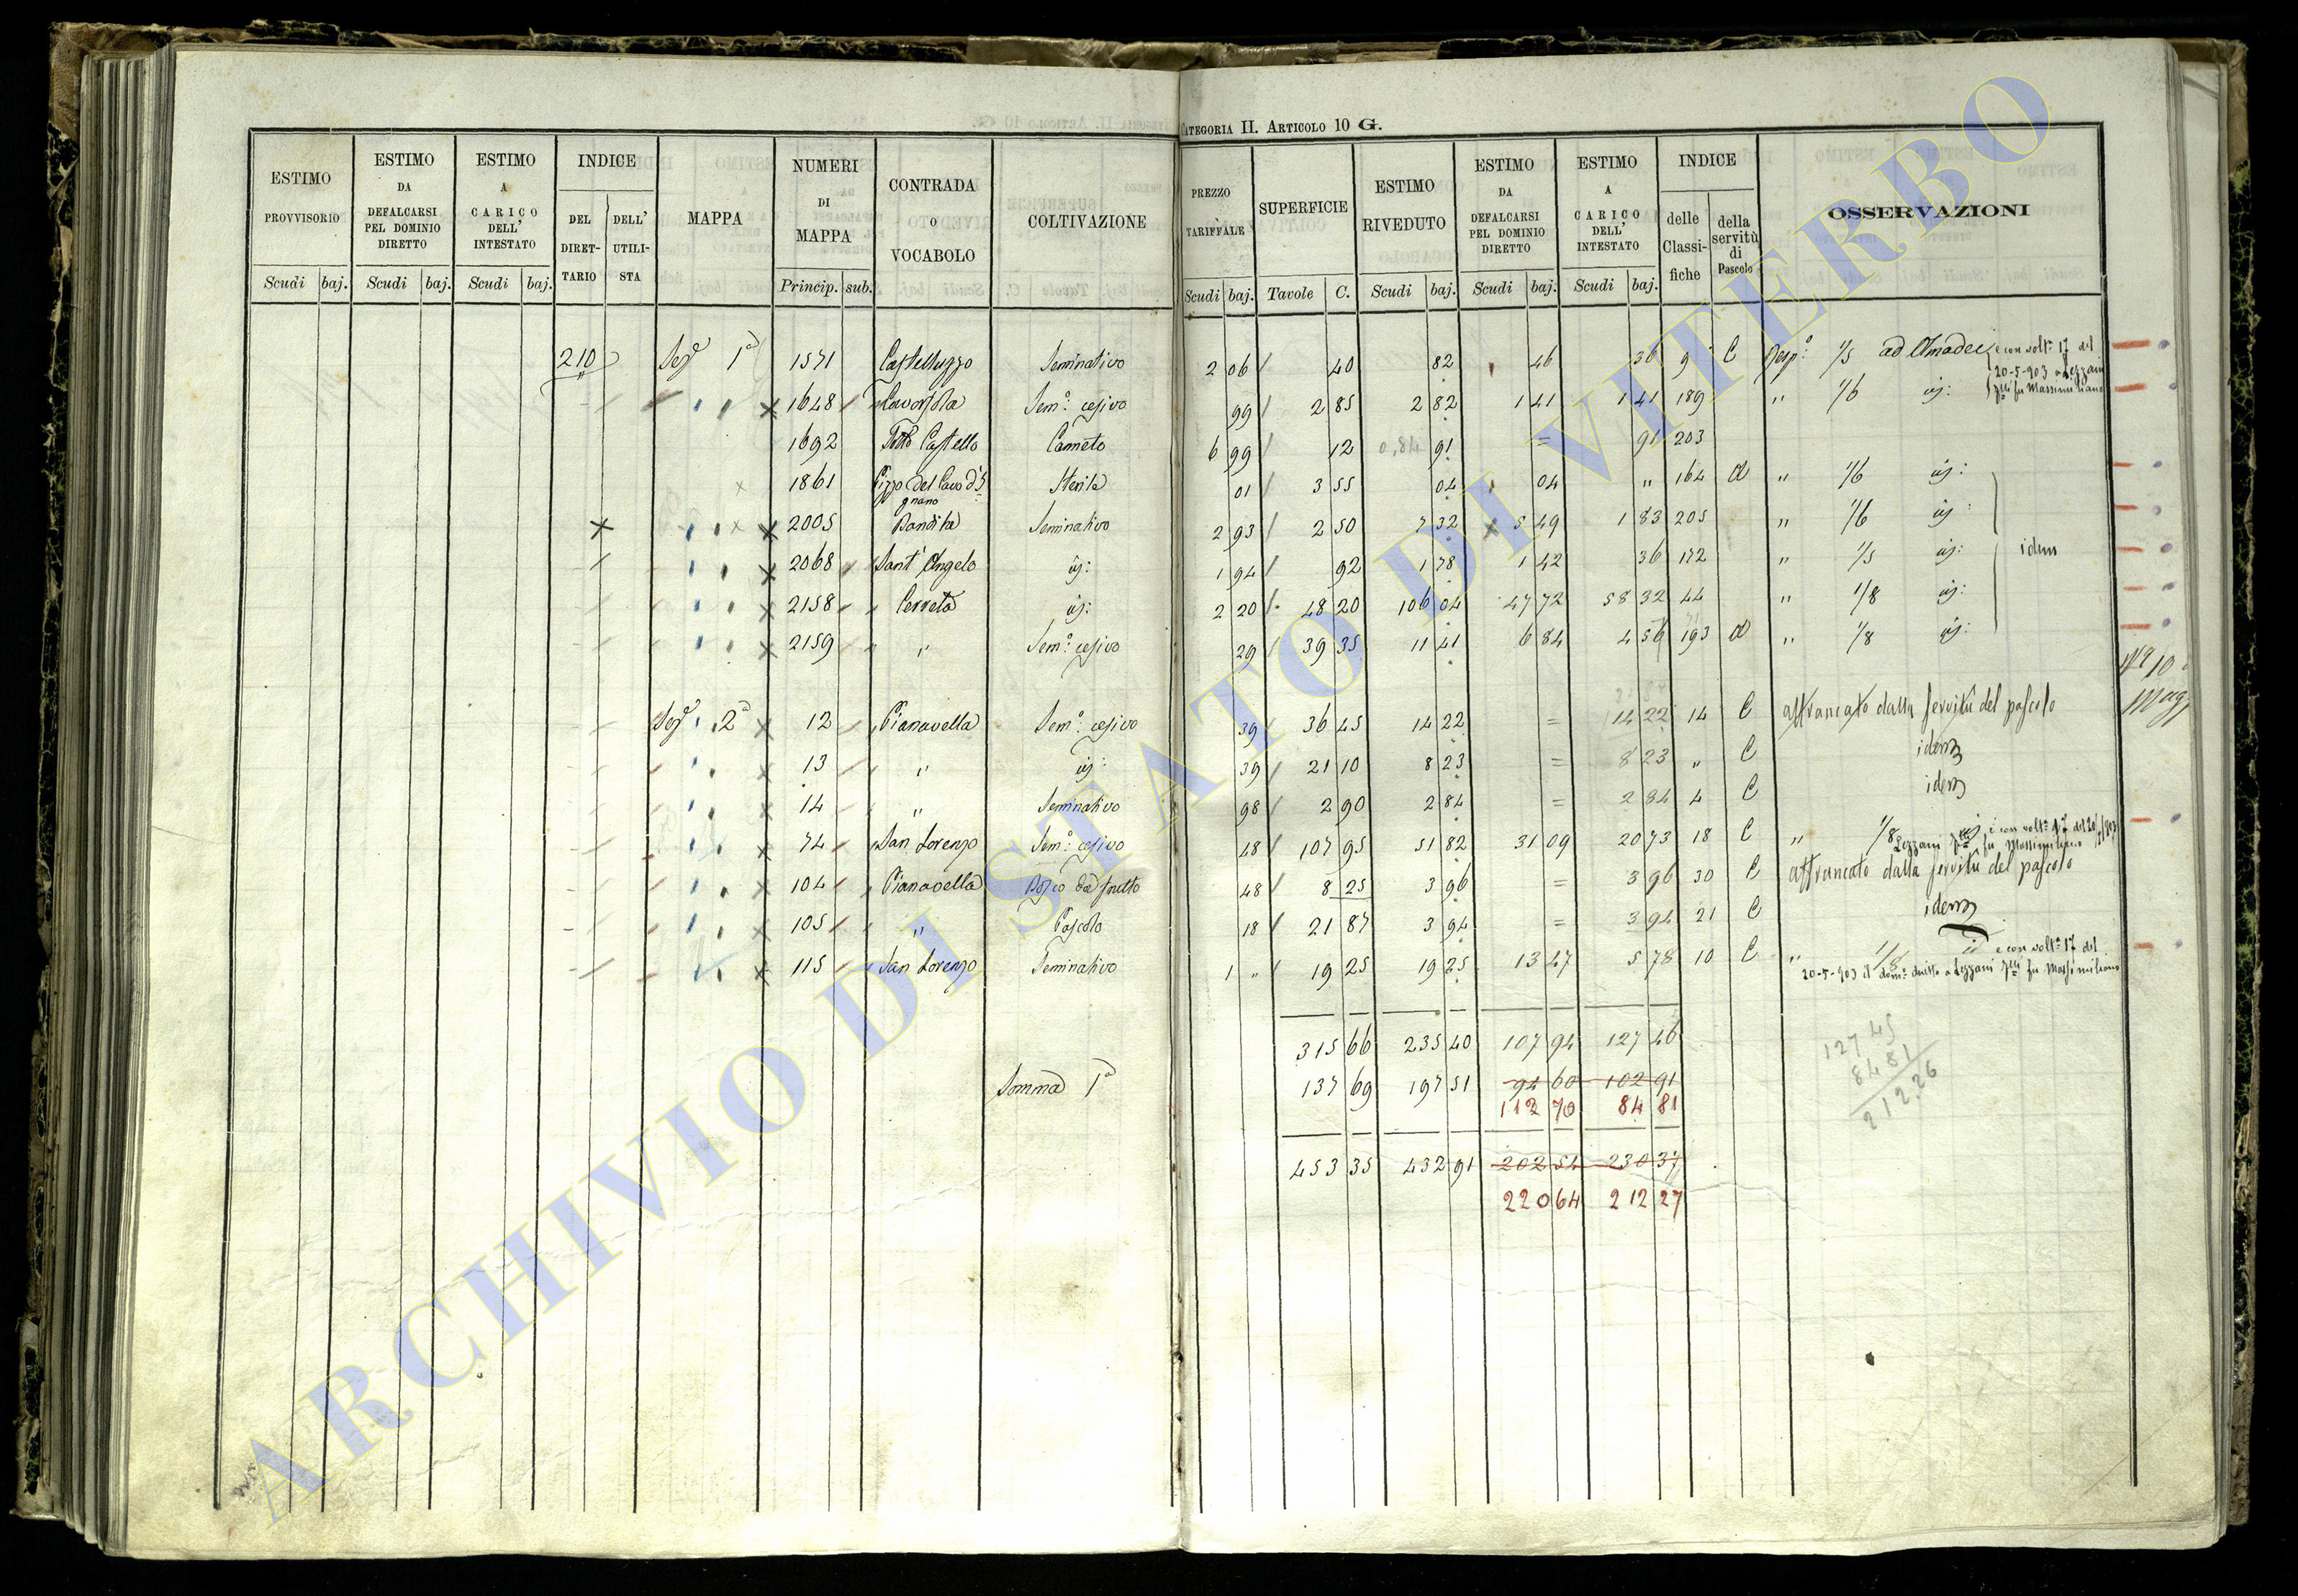 CATEGORIA II. ARTICOLO 10 G.
ESTIMO PROVVISORIO Scudi baj.
ESTIMO DA DEFALCARSI PEL DOMINIO DIRETTO Scudi baj.
ESTIMO A CARICO DELL' INTESTATO Scudi baj.
INDICE DEL DIRETTARIO DELL' UTILISTA
MAPPA
NUMERI DI MAPPA Princip. sub.
CONTRADA O VOCABOLO
COLTIVAZIONE
PREZZO TARIFFALE Scudi baj.
SUPERFICIE Tavole C.
ESTIMO RIVEDUTO Scudi baj.
ESTIMO DA DEFALCARSI PEL DOMINIO DIRETTO Scudi baj.
ESTIMO A CARICO DELL' INTESTATO Scudi baj.
INDICE delle Classifiche della servitù di Pascolo
OSSERVAZIONI
210 Sez. 1a 1571 Castelluzzo Seminativo 2 06 40 82 46 36 9 C Risp. 1/5 ad Amadei e con volta 17 del 20-5-903 a Lezzani fu Massimiliano
1648 Sem.o cesivo 99 2 85 2 82 1 41 1 41 189 " 1/6 id:
1692 Sotto Castello Canneto 6 99 12 0,84 91 = 91 203
1861 Pizzo del Cavo d'I gnano Sterile 01 3 55 04 04 " 164 " 1/6 id:
2005 Bandita Seminativo 2 93 2 50 7 32 5 49 1 83 205 " 1/6 id:
2068 Sant'Angelo id: 1 94 92 1 78 1 42 36 172 " 1/5 id: idem
2158 Cerreta id: 2 20 48 20 106 04 47 72 58 32 44 " 1/8 id:
2159 " Sem.o cesivo 29 39 35 11 41 6 84 4 56 193 " 1/8 id:
Sez. 2a 12 Pianavella Sem.o cesivo 39 36 45 14 22 = 14 22 14 C affrancato dalla servitù del pascolo
13 " id: 39 21 10 8 23 = 8 23 " C idem
14 " Seminativo 98 2 90 2 84 = 2 84 4 C idem
74 San Lorenzo Sem.o cesivo 48 107 95 51 82 31 09 20 73 18 C " 1/8 id e con volta 17 del 20/5/903 Lezzani fu Massimiliano
104 Pianavella Bosco da frutto 48 8 25 3 96 = 3 96 30 C affrancato dalla servitù del pascolo
105 " Pascolo 18 21 87 3 94 = 3 94 21 C idem
115 San Lorenzo Seminativo 1 " 19 25 19 25 13 47 5 78 10 C " 1/8 id e con volta 17 del
20-5-903 il dom.o diretto a Lezzani fu Massimiliano
315 66 235 40 107 94 127 46
Somma 1a 137 69 197 51 94 60 102 91
112 70 84 81
453 35 432 91 202 54 230 37
220 64 212 27
127 45
84 81
212.26
ARCHIVIO DI STATO DI VITERBO